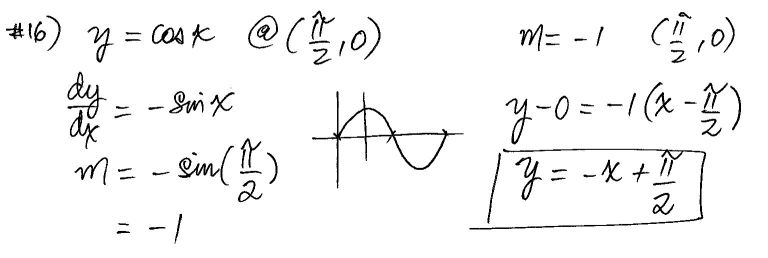 #16) y = cos x @ (π/2, 0)
dy/dx = - sin x
m = - sin(π/2)
= -1
m = -1 (π/2, 0)
y - 0 = -1(x - π/2)
y = -x + π/2